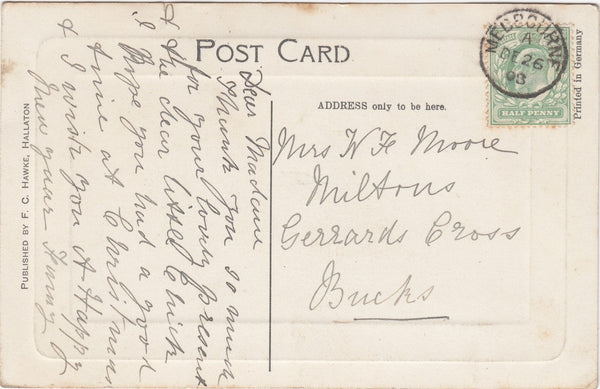 POST CARD
ADDRESS only to be here.
MEDBOURNE
A
DE 26
08
HALF PENNY
Printed in Germany
PUBLISHED BY F. C. HAWKE, HALLATON
Dear Madam
thank you so much
for your lovely present
& the dear little Chick
I hope you had a good
time at Christmas
& I wish you A Happy
New year
Mrs W F Moore
Miltons
Gerrards Cross
Bucks